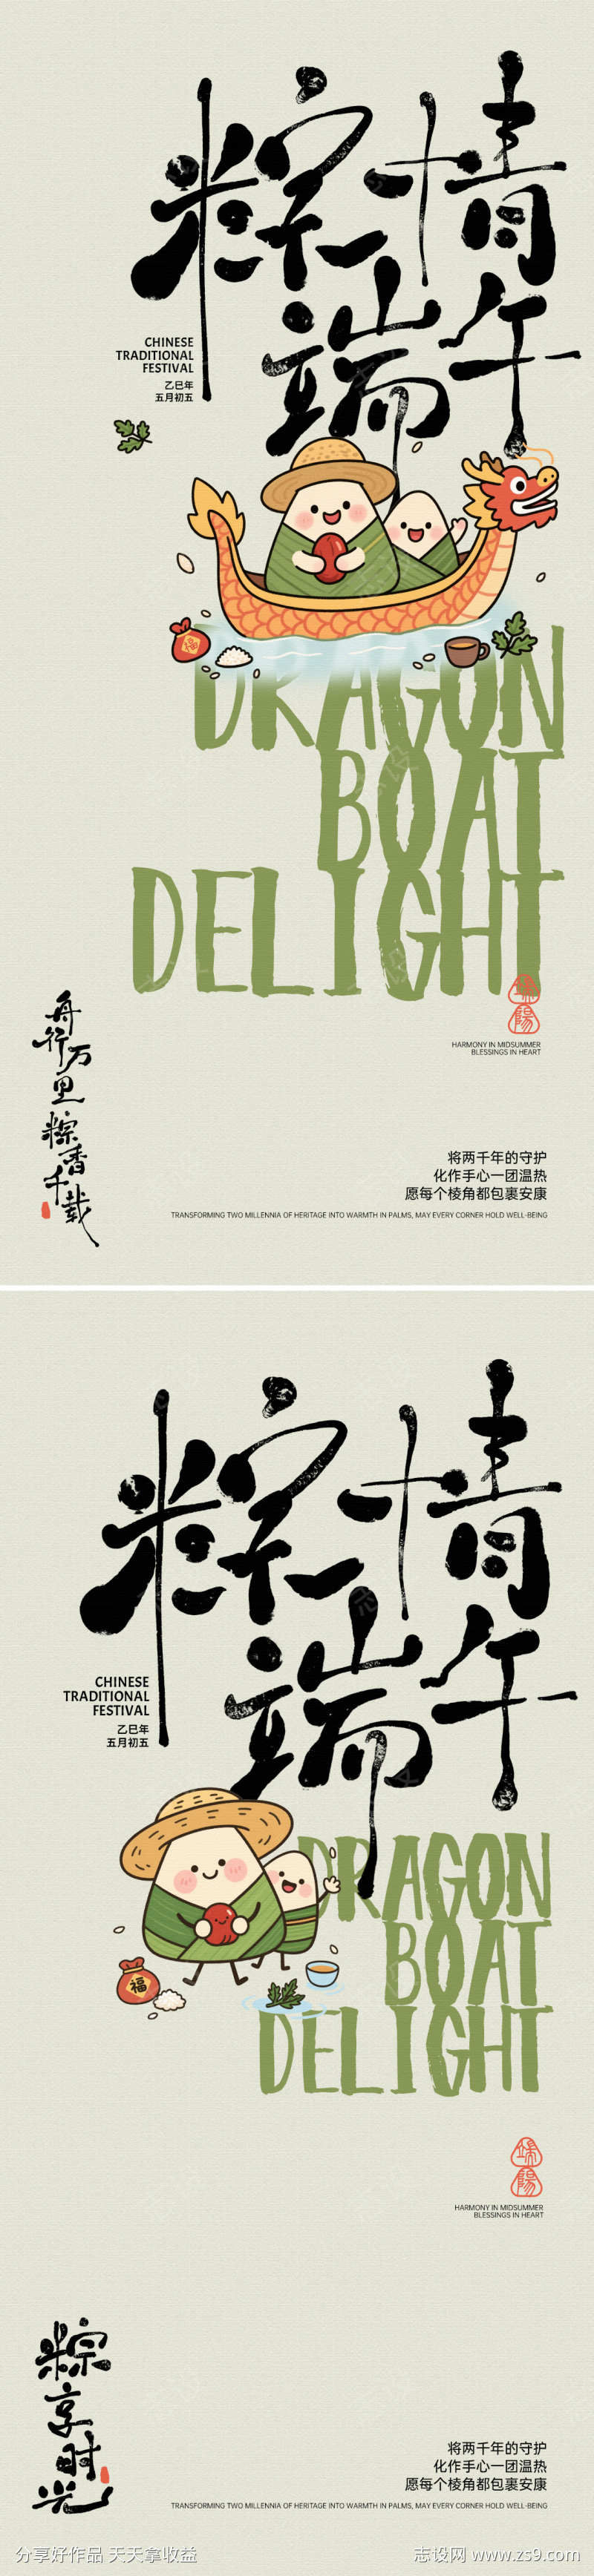 粽情
端午
CHINESE
TRADITIONAL
FESTIVAL
乙巳年
五月初五
福
DRAGON
BOAT
DELIGHT
端
陽
HARMONY IN MIDSUMMER
BLESSINGS IN HEART
舟行万里粽香千载
将两千年的守护
化作手心一团温热
愿每个棱角都包裹安康
TRANSFORMING TWO MILLENNIA OF HERITAGE INTO WARMTH IN PALMS, MAY EVERY CORNER HOLD WELL-BEING
粽情
端午
CHINESE
TRADITIONAL
FESTIVAL
乙巳年
五月初五
福
DRAGON
BOAT
DELIGHT
端
陽
HARMONY IN MIDSUMMER
BLESSINGS IN HEART
粽享时光
将两千年的守护
化作手心一团温热
愿每个棱角都包裹安康
TRANSFORMING TWO MILLENNIA OF HERITAGE INTO WARMTH IN PALMS, MAY EVERY CORNER HOLD WELL-BEING
分享好作品 天天拿收益
志设网 www.zs9.com